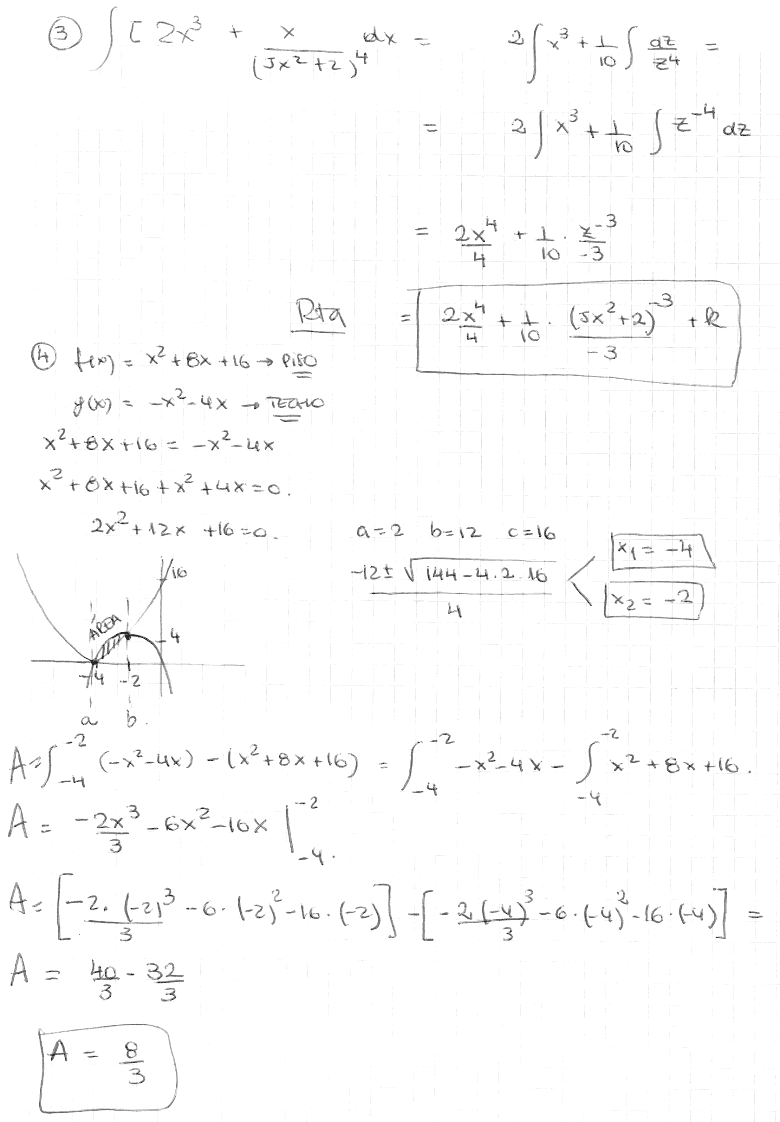 ③ ∫ [ 2x³ + x/(5x²+2)⁴ dx = 2∫x³ + 1/10 ∫ dz/z⁴ =
= 2∫x³ + 1/10 ∫ z⁻⁴ dz
= 2x⁴/4 + 1/10 · z⁻³/-3
Rta = 2x⁴/4 + 1/10 · (5x²+2)⁻³/-3 + k
④ f(x) = x²+8x+16 → PISO
g(x) = -x²-4x → TECHO
x²+8x+16 = -x²-4x
x²+8x+16+x²+4x=0.
2x²+12x+16=0. a=2 b=12 c=16
-12±√144-4.2.16/4 < x₁ = -4
x₂ = -2
16
ÁREA
4
-4 -2
a b.
A=∫₋₄⁻² (-x²-4x) - (x²+8x+16) = ∫₋₄⁻² -x²-4x - ∫₋₄⁻² x²+8x+16.
A = -2x³/3 - 6x² - 16x |₋₄⁻².
A= [-2·(-2)³/3 - 6·(-2)² - 16·(-2)] - [-2(-4)³/3 - 6·(-4)² - 16·(-4)] =
A = 40/3 - 32/3
A = 8/3